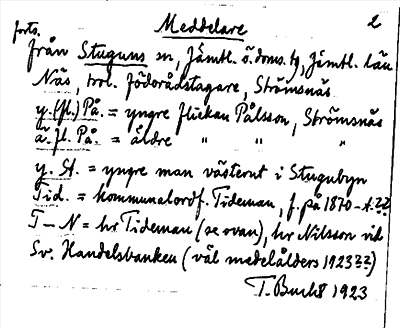 forts. Meddelare 2
från Stuguns sn, Jämtl. ö. doms. tg, Jämtl. län
Näs, trol. födorådstagare, Strömsnäs
y. (fl.) På. = yngre flickan Pålsson, Strömsnäs
ä. fl. På. = äldre " " "
y. St. = yngre man västerut i Stugubyn
Tid. = kommunalordf. Tideman, f. på 1870-t. ??
T–N = hr Tideman (se ovan), hr Nilsson vid
Sv. Handelsbanken (väl medelålders 1923 ??)
T. Bucht 1923